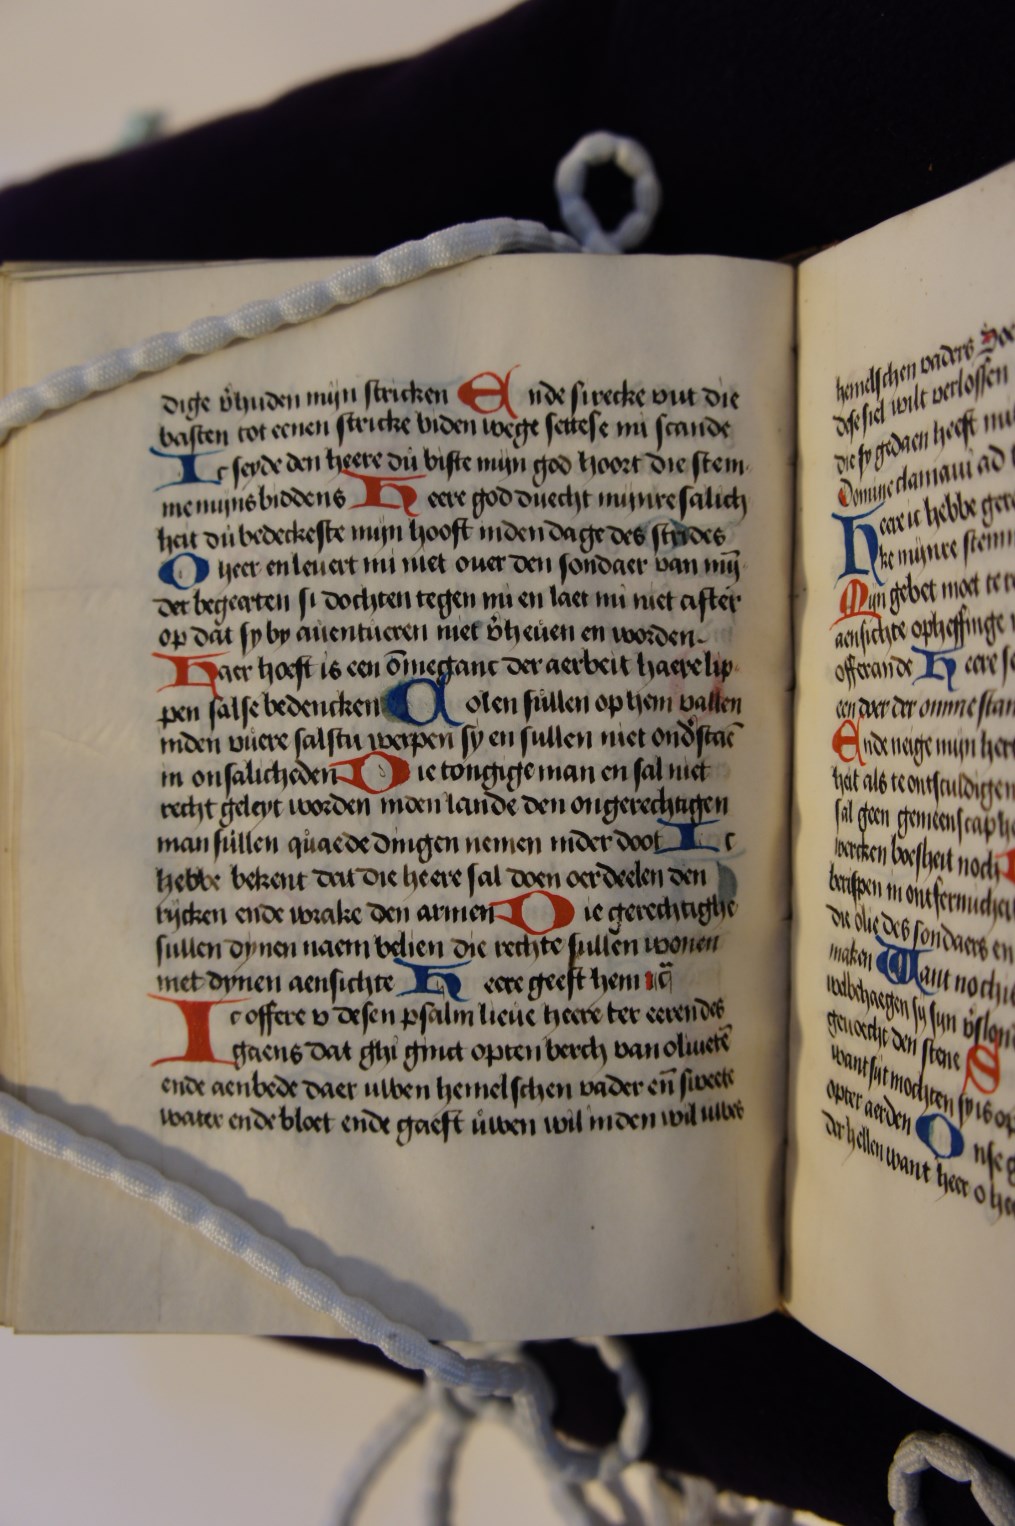 dige v̊huden mijn stricken Ende strecke vut die
basten tot eenen stricke biden wege settese mi scande
Ic seyde den heere du biste mijn god hoort die stem
me mijns biddens Heere god duecht mijnre salich
heit du bedeckeste mijn hooft inden dage des strides
O heer en levert mi niet over den sondaer van mij
der begeerten si dochten tegen mi en laet mi niet after
op dat sy by aventueren niet v̊heven en worden
Haer hoeft is een ōmeganc der aerbeit haere lip
pen salse bedencken Colen sullen op hem vallen
inden vuere salstu werpen sy en sullen niet ond̊staē
in onsalicheden Die tongige man en sal niet
recht geleyt worden inden lande den ongerechtigen
man sullen quaede dingen nemen inder doot Ic
hebbe bekent dat die heere sal doen oerdeelen den
rijcken ende wrake den armen Die gerechtighe
sullen dynen naem belien die rechte sullen wonen
met dynen aensichte Heere geeft hem
Ic offere v desen psalm lieve heere ter eeren des
gaens dat ghi ginct opten berch van olivetē
ende aenbede daer uwen hemelschen vader eñ sweete
water ende bloet ende gaeft uwen wil inden wil uwes
hemelschen vaders
dese siel wilt verlossen
die sy gedaen heeft
Domine clamavi ad
Heere ic hebbe
ke mijnre stem
Mijn gebet moet te
aensichte opheffinge
offerande Heere
een doer der omme stan
Ende neige mijn hert
heit als te ontsculdigen
sal geen gemeenscaph
wercken boesheit noch
berispen in ontfermichei
die olie des sondaers en
maken Want noch
welbehaegen sy sijn
gevoecht den stene S
want sijt mochten sy is
opter aerden Onse
der hellen want heer o